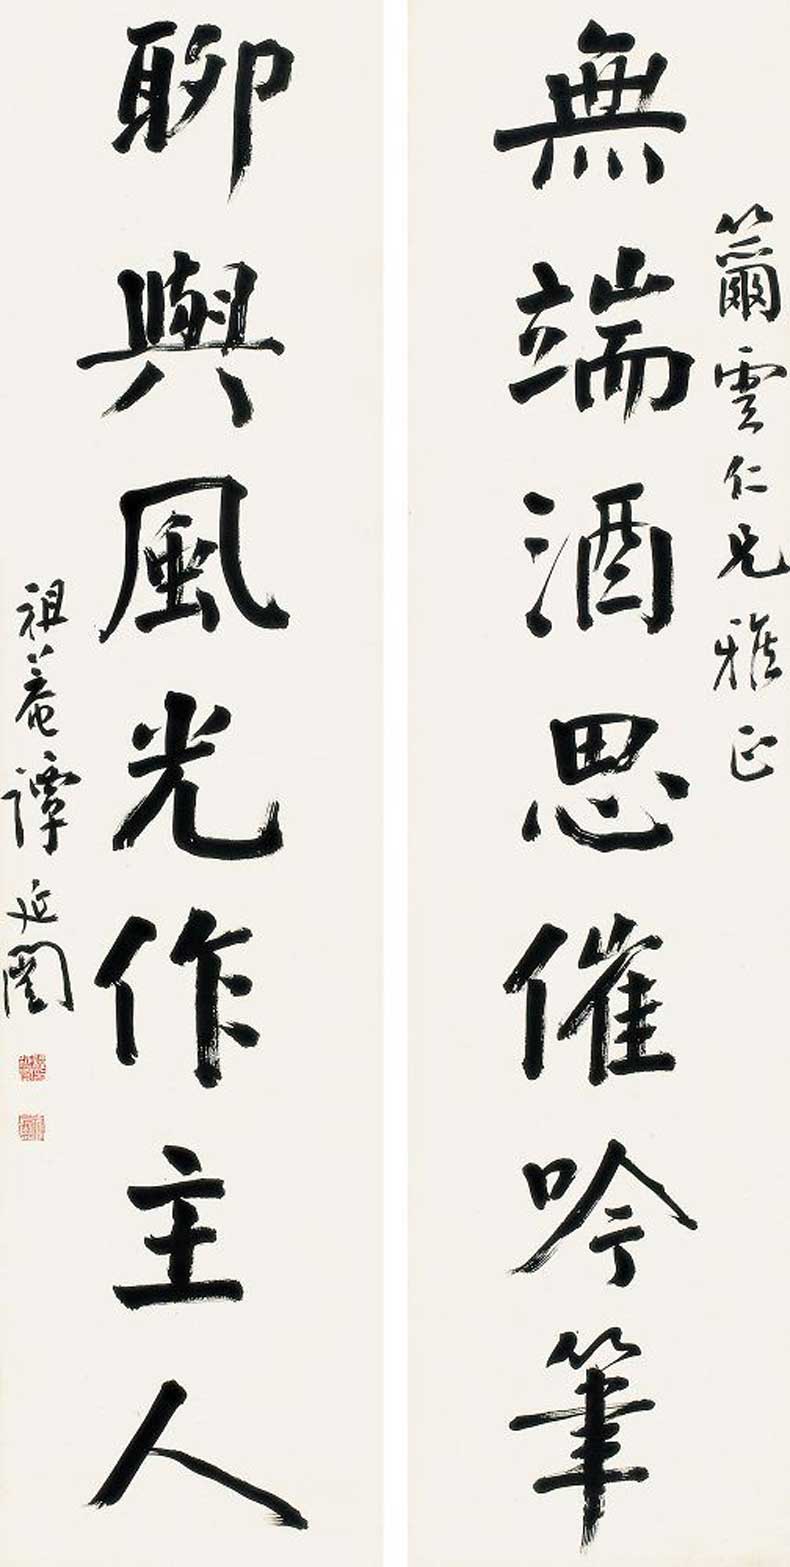 籋雲仁兄雅正
無端酒思催吟筆
聊與風光作主人
祖菴譚延闓